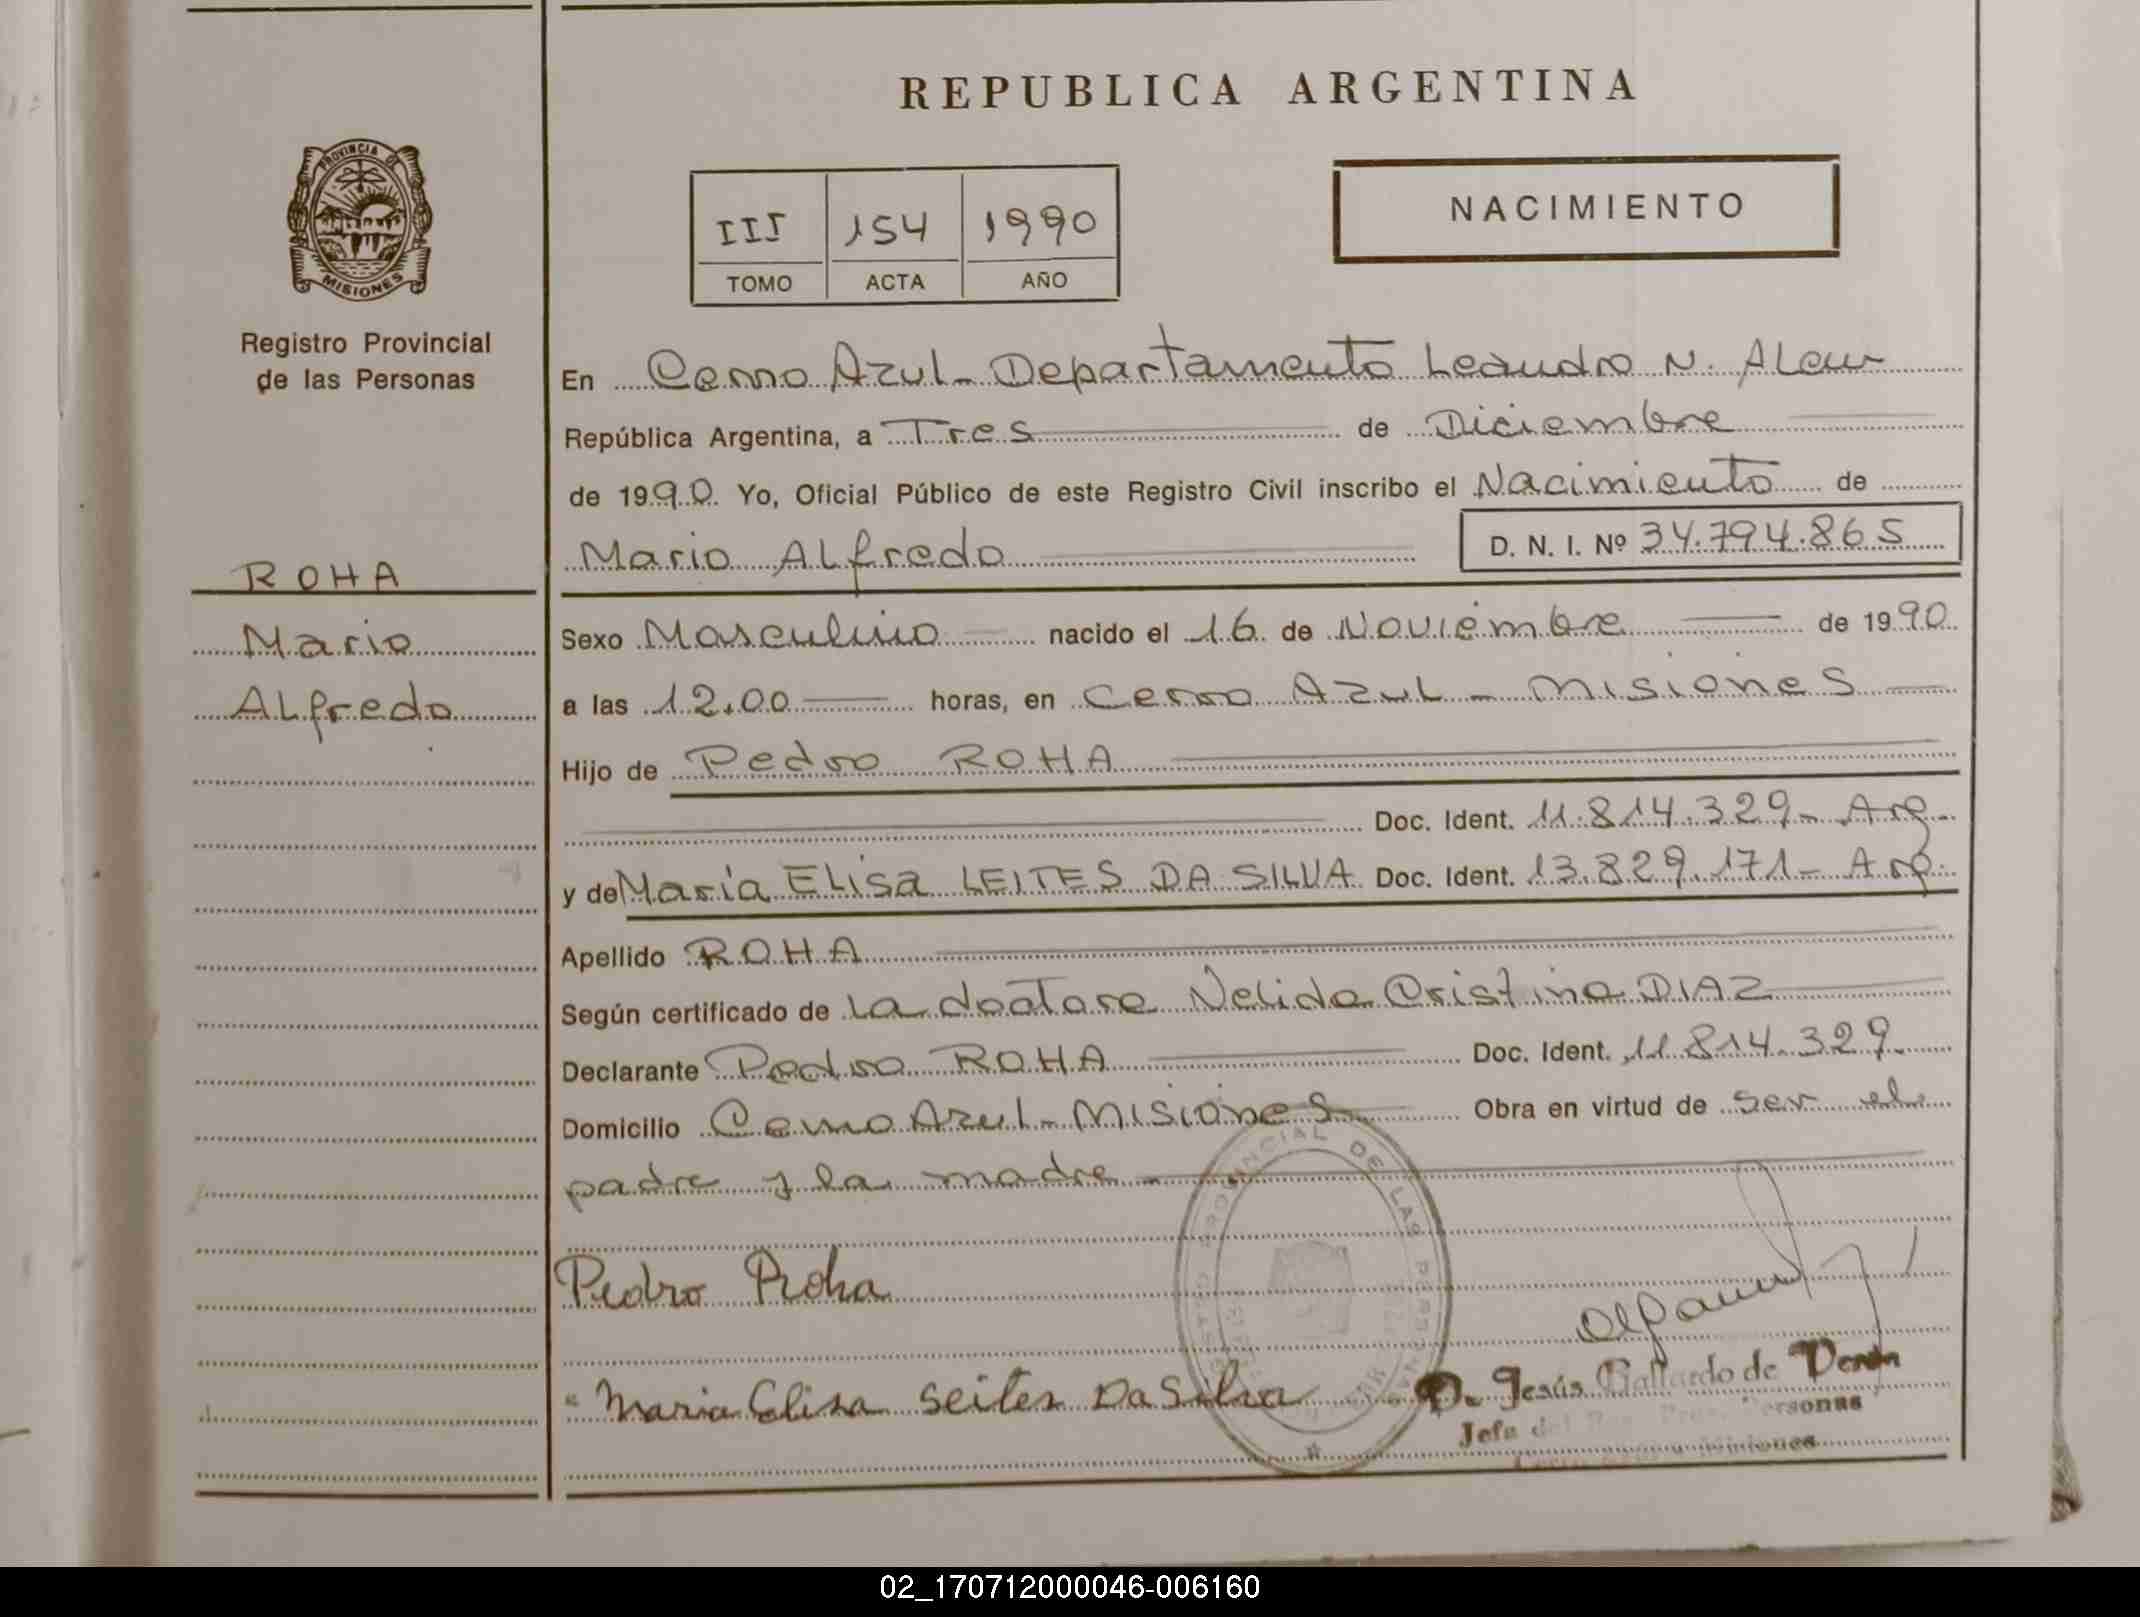 REPUBLICA ARGENTINA
PROVINCIA DE
MISIONES
Registro Provincial
de las Personas
III 154 1990
TOMO ACTA AÑO
NACIMIENTO
En Cerro Azul - Departamento Leandro N. Alem
República Argentina, a Tres de Diciembre
de 1990 Yo, Oficial Público de este Registro Civil inscribo el Nacimiento de
Mario ALfredo D. N. I. Nº 34.794.865
ROHA
Mario
ALfredo
Sexo Masculino nacido el 16 de Noviembre de 1990
a las 12.00 horas, en Cerro Azul - Misiones
Hijo de Pedro ROHA
Doc. Ident. 11.814.329 - Arg.
y de María ELisa LEITES DA SILVA Doc. Ident. 13.829.171 - Arg.
Apellido ROHA
Según certificado de la doctora Nelida Cristina DIAZ
Declarante Pedro ROHA Doc. Ident. 11.814.329
Domicilio Cerro Azul - Misiones Obra en virtud de ser el
padre y la madre -
Pedro Roha
Maria Elisa Leites Da Silva
D. Jesús Gallardo de Verón
Jefa del Reg. Prov. Personas
Misiones
PROVINCIAL DE LAS PERSONAS
02_170712000046-006160